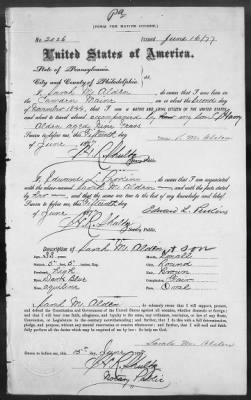 Pa
[FORM FOR NATIVE CITIZEN.]
No. 2026 Issued June 16/77
United States of America.
State of Pennsylvania,
City and County of Philadelphia
I, Sarah M Alden do swear that I was born in
Camden Maine on or about the second day
of November 1844, that I am a NATIVE AND LOYAL CITIZEN OF THE UNITED STATES
and about to travel abroad accompanied by my son
Alden aged
Sworn to before me, this Fifteenth day
of June 1877
S. M Alden
I, Edward L Perkins do swear that I am acquainted
with the above-named Sarah M. Alden and with the facts stated
by her and that the same are true to the best of my knowledge and belief.
Sworn to before me, this Fifteenth day
of June
Edward L. Perkins
Notary Public
Description of Sarah M. Alden & son
Age: 32 years
Mouth: Small
Stature: 5 ft 5 inches, Eng.
Chin: Round
Forehead: High
Hair: Brown
Eyes: Dark Blue
Complexion: Fair
Nose: aquiline
Face: Oval
I, Sarah M. Alden do solemnly swear that I will support, protect,
and defend the Constitution and Government of the United States against all enemies, whether domestic or foreign;
and that I will bear true faith, allegiance, and loyalty to the same, any ordinance, resolution, or law of any State,
Convention, or Legislature to the contrary notwithstanding; and further, that I do this with a full determination,
pledge, and purpose, without any mental reservation or evasion whatsoever; and further, that I will well and faithfully
perform all the duties which may be required of me by law. So help me God.
Sarah M Alden
Sworn to before me, this 15th day June
Notary Public